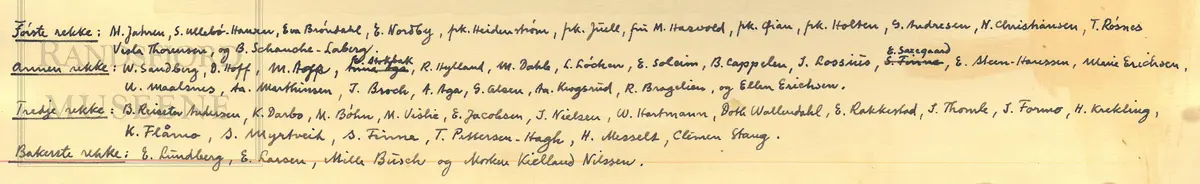 Første rekke: M. Jahren, S. Ullebö-Hansen, Eva Bröndahl, E. Nordby, frk. Heidenström, frk. Juell, fru M. Hasvold, frk. Qian, frk. Holten, G. Andresen, N. Christiansen, T. Rösnes
Viola Thoresen, og B. Schanche-Laberg.
Annen rekke: W. Sandberg, D. Hoff, M. Hoff, R. Hylland, M. Dahle, L. Löcken, E. Soleim, B. Cappelen, J. Loosius, E. Saxegaard S. Finne, E. Steen-Hanssen, Marie Erichsen,
U. Maalsnes, Aa. Marthinsen, J. Broch, A. Aga, G. Olsen, Aa. Krogsrud, R. Bragelien, og Ellen Erichsen.
Tredje rekke: B. Andersen, K. Darbo, M. Böhn, M. Vislie, E. Jacobsen, J. Nielsen, W. Hartmann, Doth Wallendahl, E. Rakkestad, J. Thomle, J. Formo, H. Kvekling,
K. Flåmo, S. Myrtveit, S. Finne, T. Pettersen-Hagh, H. Messelt, Clemen Staug.
Bakerste rekke: E. Lundberg, E. Larsen, Mille Busch og Morten Kielland Nilssen.
RAN
MUSEENE